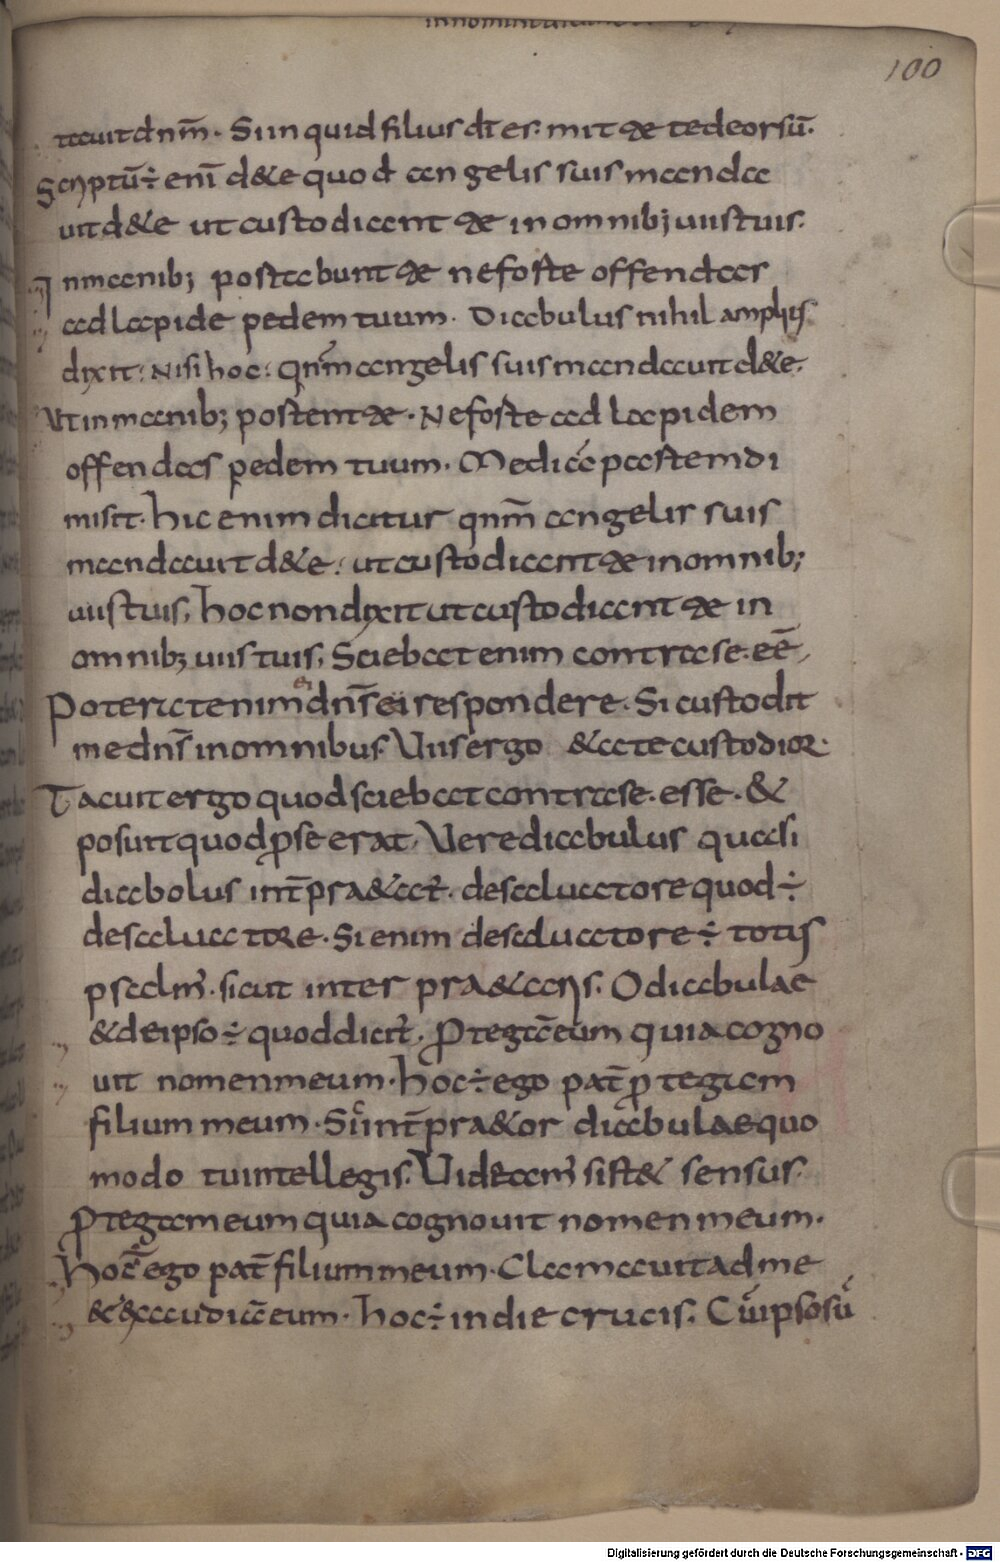 100
tauit dnm̄. Si inquid filius dī es. mitte te deorsū.
Scriptū ÷ enī d&e quod angelis suis manda
uit d&e ut custodiant te in omnib; uiis tuis.
In manib; portabunt te ne forte offendas
ad lapide pedem tuum. Diabulus nihil amplius
dixit: Nisi hoc: qnm̄ angelis suis mandauit d&e.
Ut in manib; portent te. Ne forte ad lapidem
offendas pedem tuum. Mediā partem di
misit. hic enim dicitur qnm̄ angelis suis
mandauit d&e: ut custodiant te in omnib;
uiis tuis, hoc non dixit ut custodiant te in
omnib; uiis tuis, Sciebat enim contra se. eē,
Poterat enim dns̄ ei respondere. Si custodit
me dns̄ in omnibus Uiis ergo & a te custodior.
Tacuit ergo quod sciebat contra se. esse. &
posuit quod p̄ se erat, Vere diabulus quasi
diabolus int̄pra&at̄. de saluatore quod ÷
de saluatore. Si enim de saluatore ÷ totus
psalm̄. sicut inter pra&aris. O diabulae
& de ipso ÷ quod dicit̄. P̄tegā eum quia cogno
uit nomen meum. hoc ÷ ego pat̄ p̄tegam
filium meum. Si int̄pra&or diabulae quo
modo tu intellegis. Videam̄ si st& sensus.
P̄tegam eum quia cognouit nomen meum.
hoc ÷ ego pat̄ filium meum. Clamauit ad me
& exaudiā eum. hoc ÷ in die crucis. Cū ipso sū
Digitalisierung gefördert durch die Deutsche Forschungsgemeinschaft - DFG